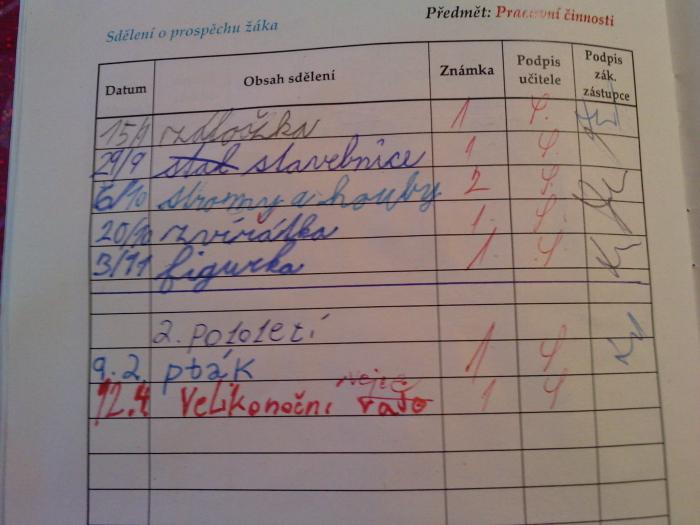 Sdělení o prospěchu žáka
Předmět: Pracovní činnosti
Datum Obsah sdělení Známka Podpis učitele Podpis zák. zástupce
15/9 záložka 1
29/9 stavebnice 1
6/10 stromy a houby 2
20/10 zvířátka 1
3/11 figurka 1
2. pololetí
9.2. pták 1
12.4 Velikonoční vejce 1